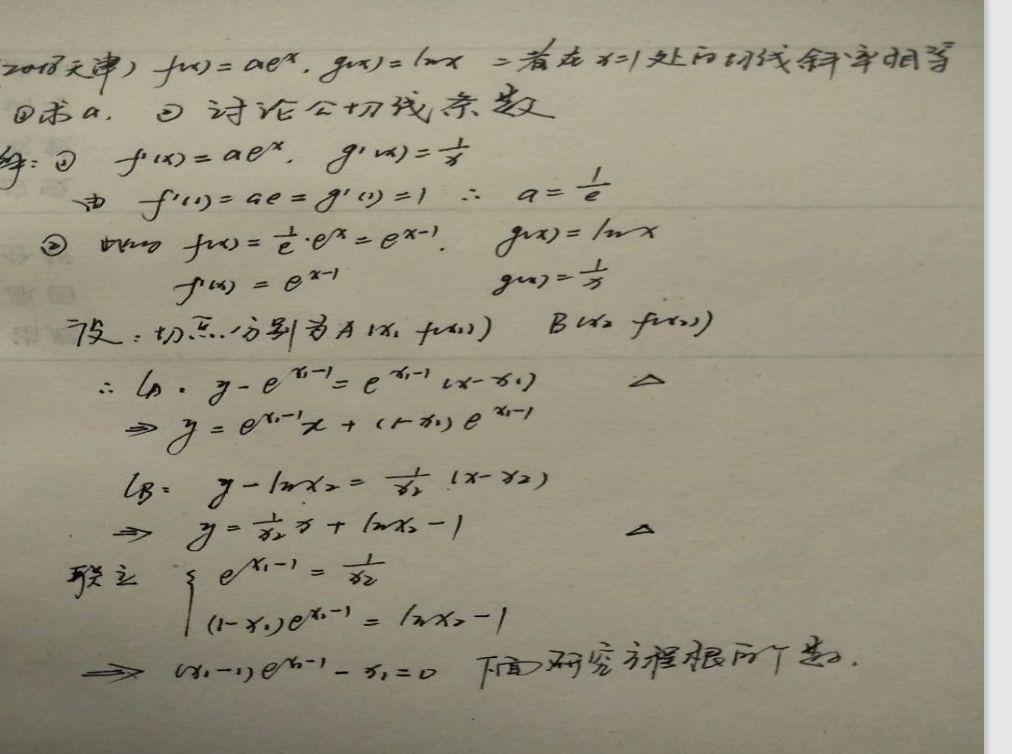 (2018天津) f(x)=ae^x, g(x)=lnx 二者在x=1处的切线斜率相等
①求a. ② 讨论公切线条数
解: ① f'(x)=ae^x, g'(x)=1/x
由 f'(1)=ae=g'(1)=1 ∴ a=1/e
② f(x)=1/e·e^x=e^{x-1}, g(x)=lnx
f'(x)=e^{x-1} g(x)=1/x
设:切点分别为A(x₁ f(x₁)) B(x₂ f(x₂))
∴ l_A: y-e^{x₁-1}=e^{x₁-1}(x-x₁) △
⇒ y=e^{x₁-1}x+(1-x₁)e^{x₁-1}
l_B: y-lnx₂=1/x₂(x-x₂)
⇒ y=1/x₂ x+lnx₂-1 △
联立 { e^{x₁-1}=1/x₂
(1-x₁)e^{x₁-1}=lnx₂-1
⇒ (x₁-1)e^{x₁-1}-x₁=0 下面研究方程根的个数.